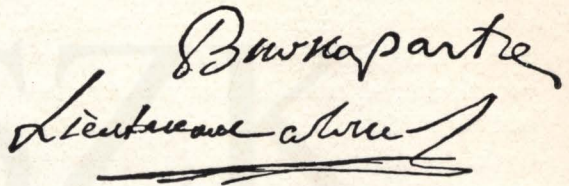 Buonaparte
Lieutenant colonel